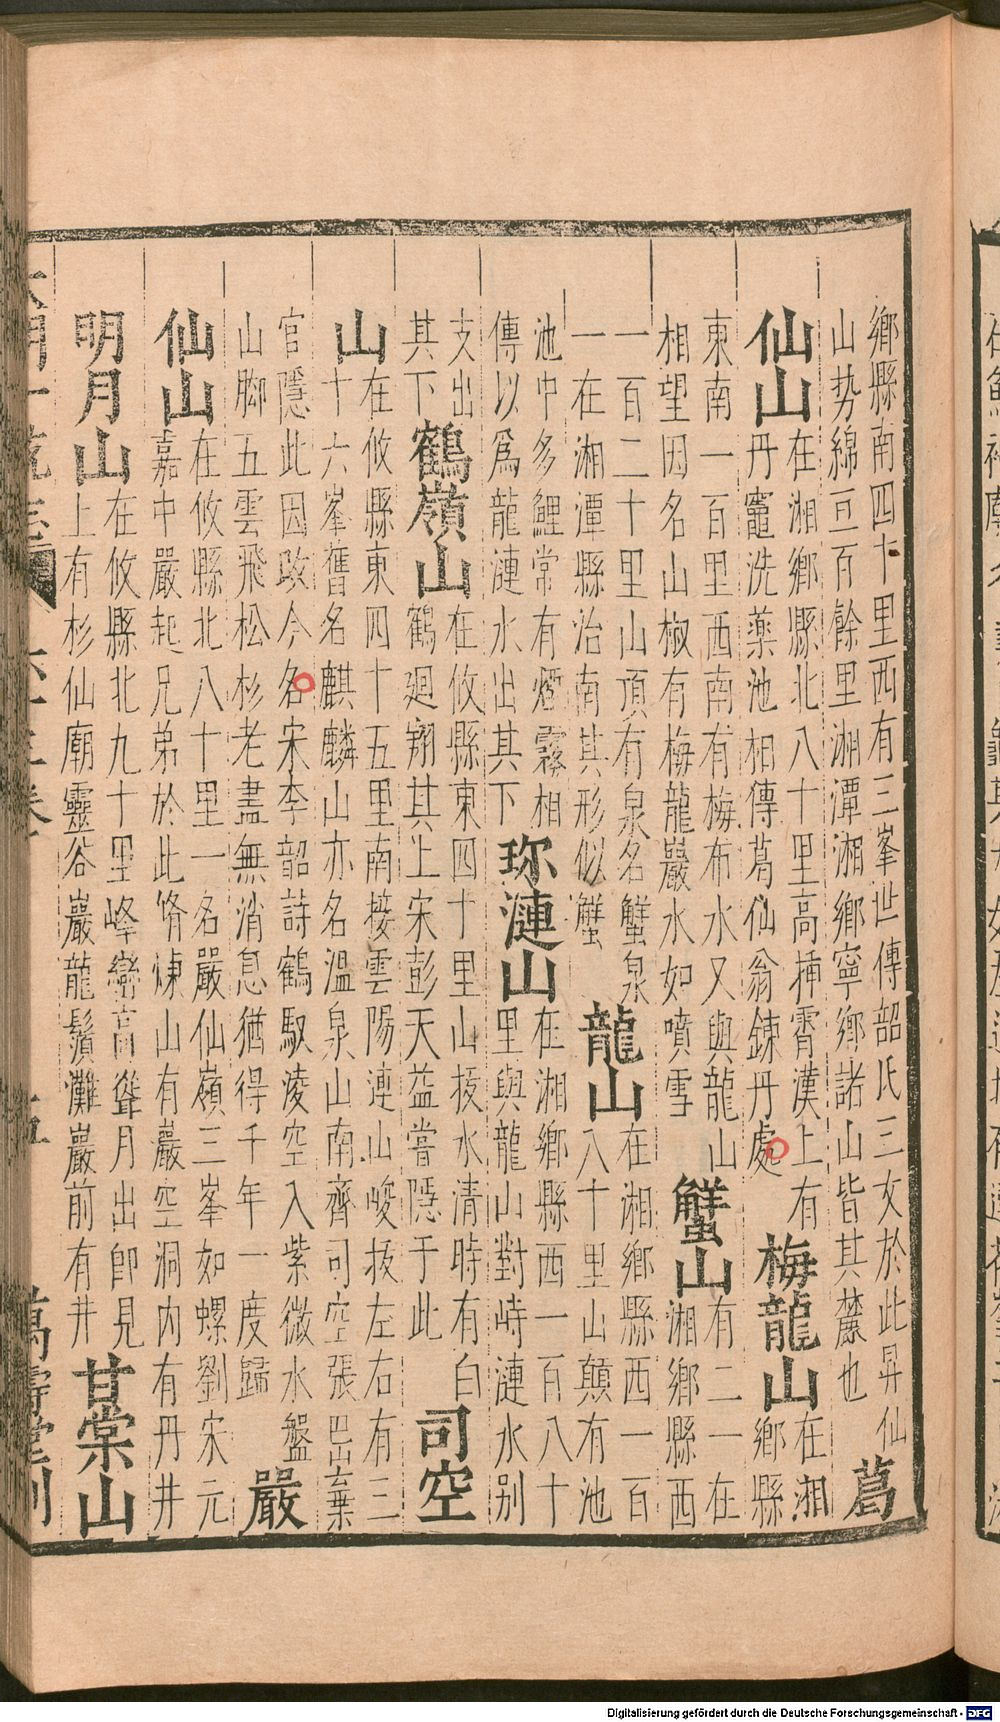 鄉縣南四十里西有三峯世傳韶氏三女於此昇仙
山势綿亘百餘里湘潭湘鄉寧鄉諸山皆其麓也
葛
仙山
在湘鄉縣北八十里高揷霄漢上有
丹竈洗藥池相傳葛仙翁鍊丹處
梅龍山
在湘
鄉縣
東南一百里西南有梅布水又與龍山
相望因名山椒有梅龍巖水如噴雪
蟹山
有二一在
湘鄉縣西
一百二十里山頂有泉名蟹泉
一在湘潭縣治南其形似蟹
龍山
在湘鄉縣西一百
八十里山顛有池
池中多鯉常有煙霧相
傳以爲龍漣水出其下
珎漣山
在湘鄉縣西一百八十
里與龍山對峙漣水别
支出
其下
鶴嶺山
在攸縣東四十里山拔水清時有白
鶴迴翔其上宋彭天益嘗隱于此
司空
山
在攸縣東四十五里南接雲陽連山峻拔左右有三
十六峯舊名麒麟山亦名温泉山南齊司空張棄
官隱此因改今名宋李韶詩鶴馭凌空入紫微水盤
山脚五雲飛松杉老盡無消息猶得千年一度歸
嚴
仙山
在攸縣北八十里一名嚴仙嶺三峯如螺劉宋元
嘉中嚴起兄弟於此脩煉山有巖空洞内有丹井
明月山
在攸縣北九十里峰巒高聳月出即見
上有杉仙廟靈谷巖龍鬚灘巖前有井
甘棠山
大明一統志
萬壽堂刊
Digitalisierung gefördert durch die Deutsche Forschungsgemeinschaft - DFG